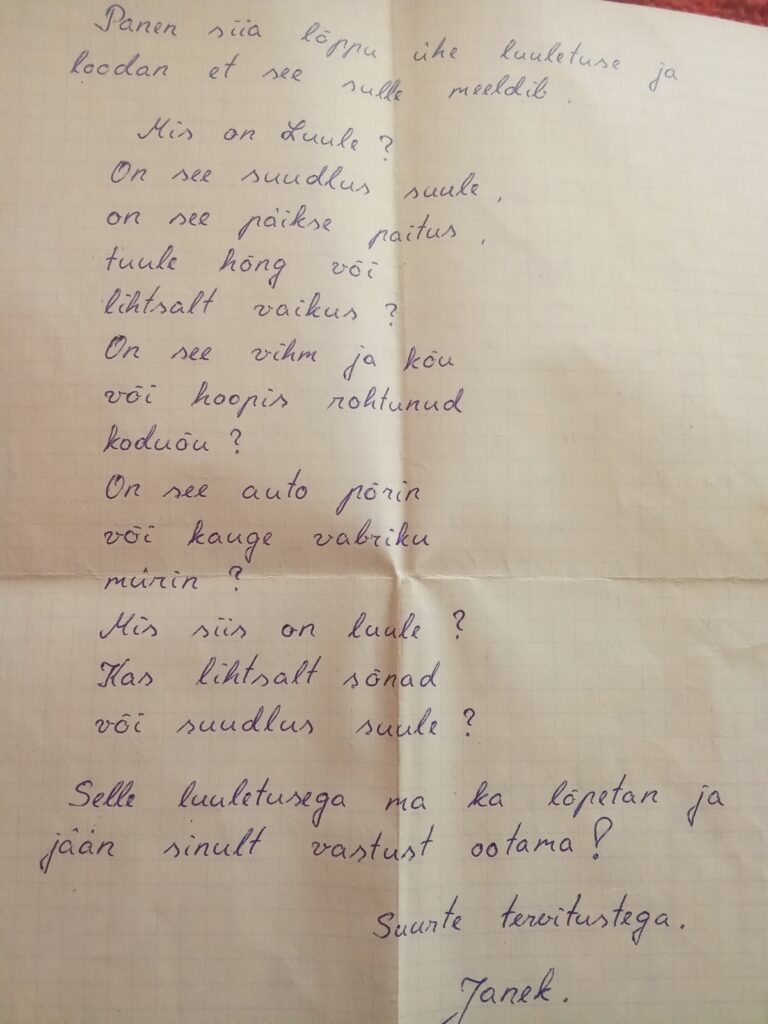 Panen siia lõppu ühe luuletuse ja
loodan et see sulle meeldib.
Mis on Luule?
On see suudlus suule,
on see päikse paitus,
tuule hõng või
lihtsalt vaikus?
On see vihm ja kõu
või hoopis rohtunud
koduõu?
On see auto põrin
või kauge vabriku
mürin?
Mis siis on luule?
Kas lihtsalt sõnad
või suudlus suule?
Selle luuletusega ma ka lõpetan ja
jään sinult vastust ootama!
Suurte tervitustega.
Janek.